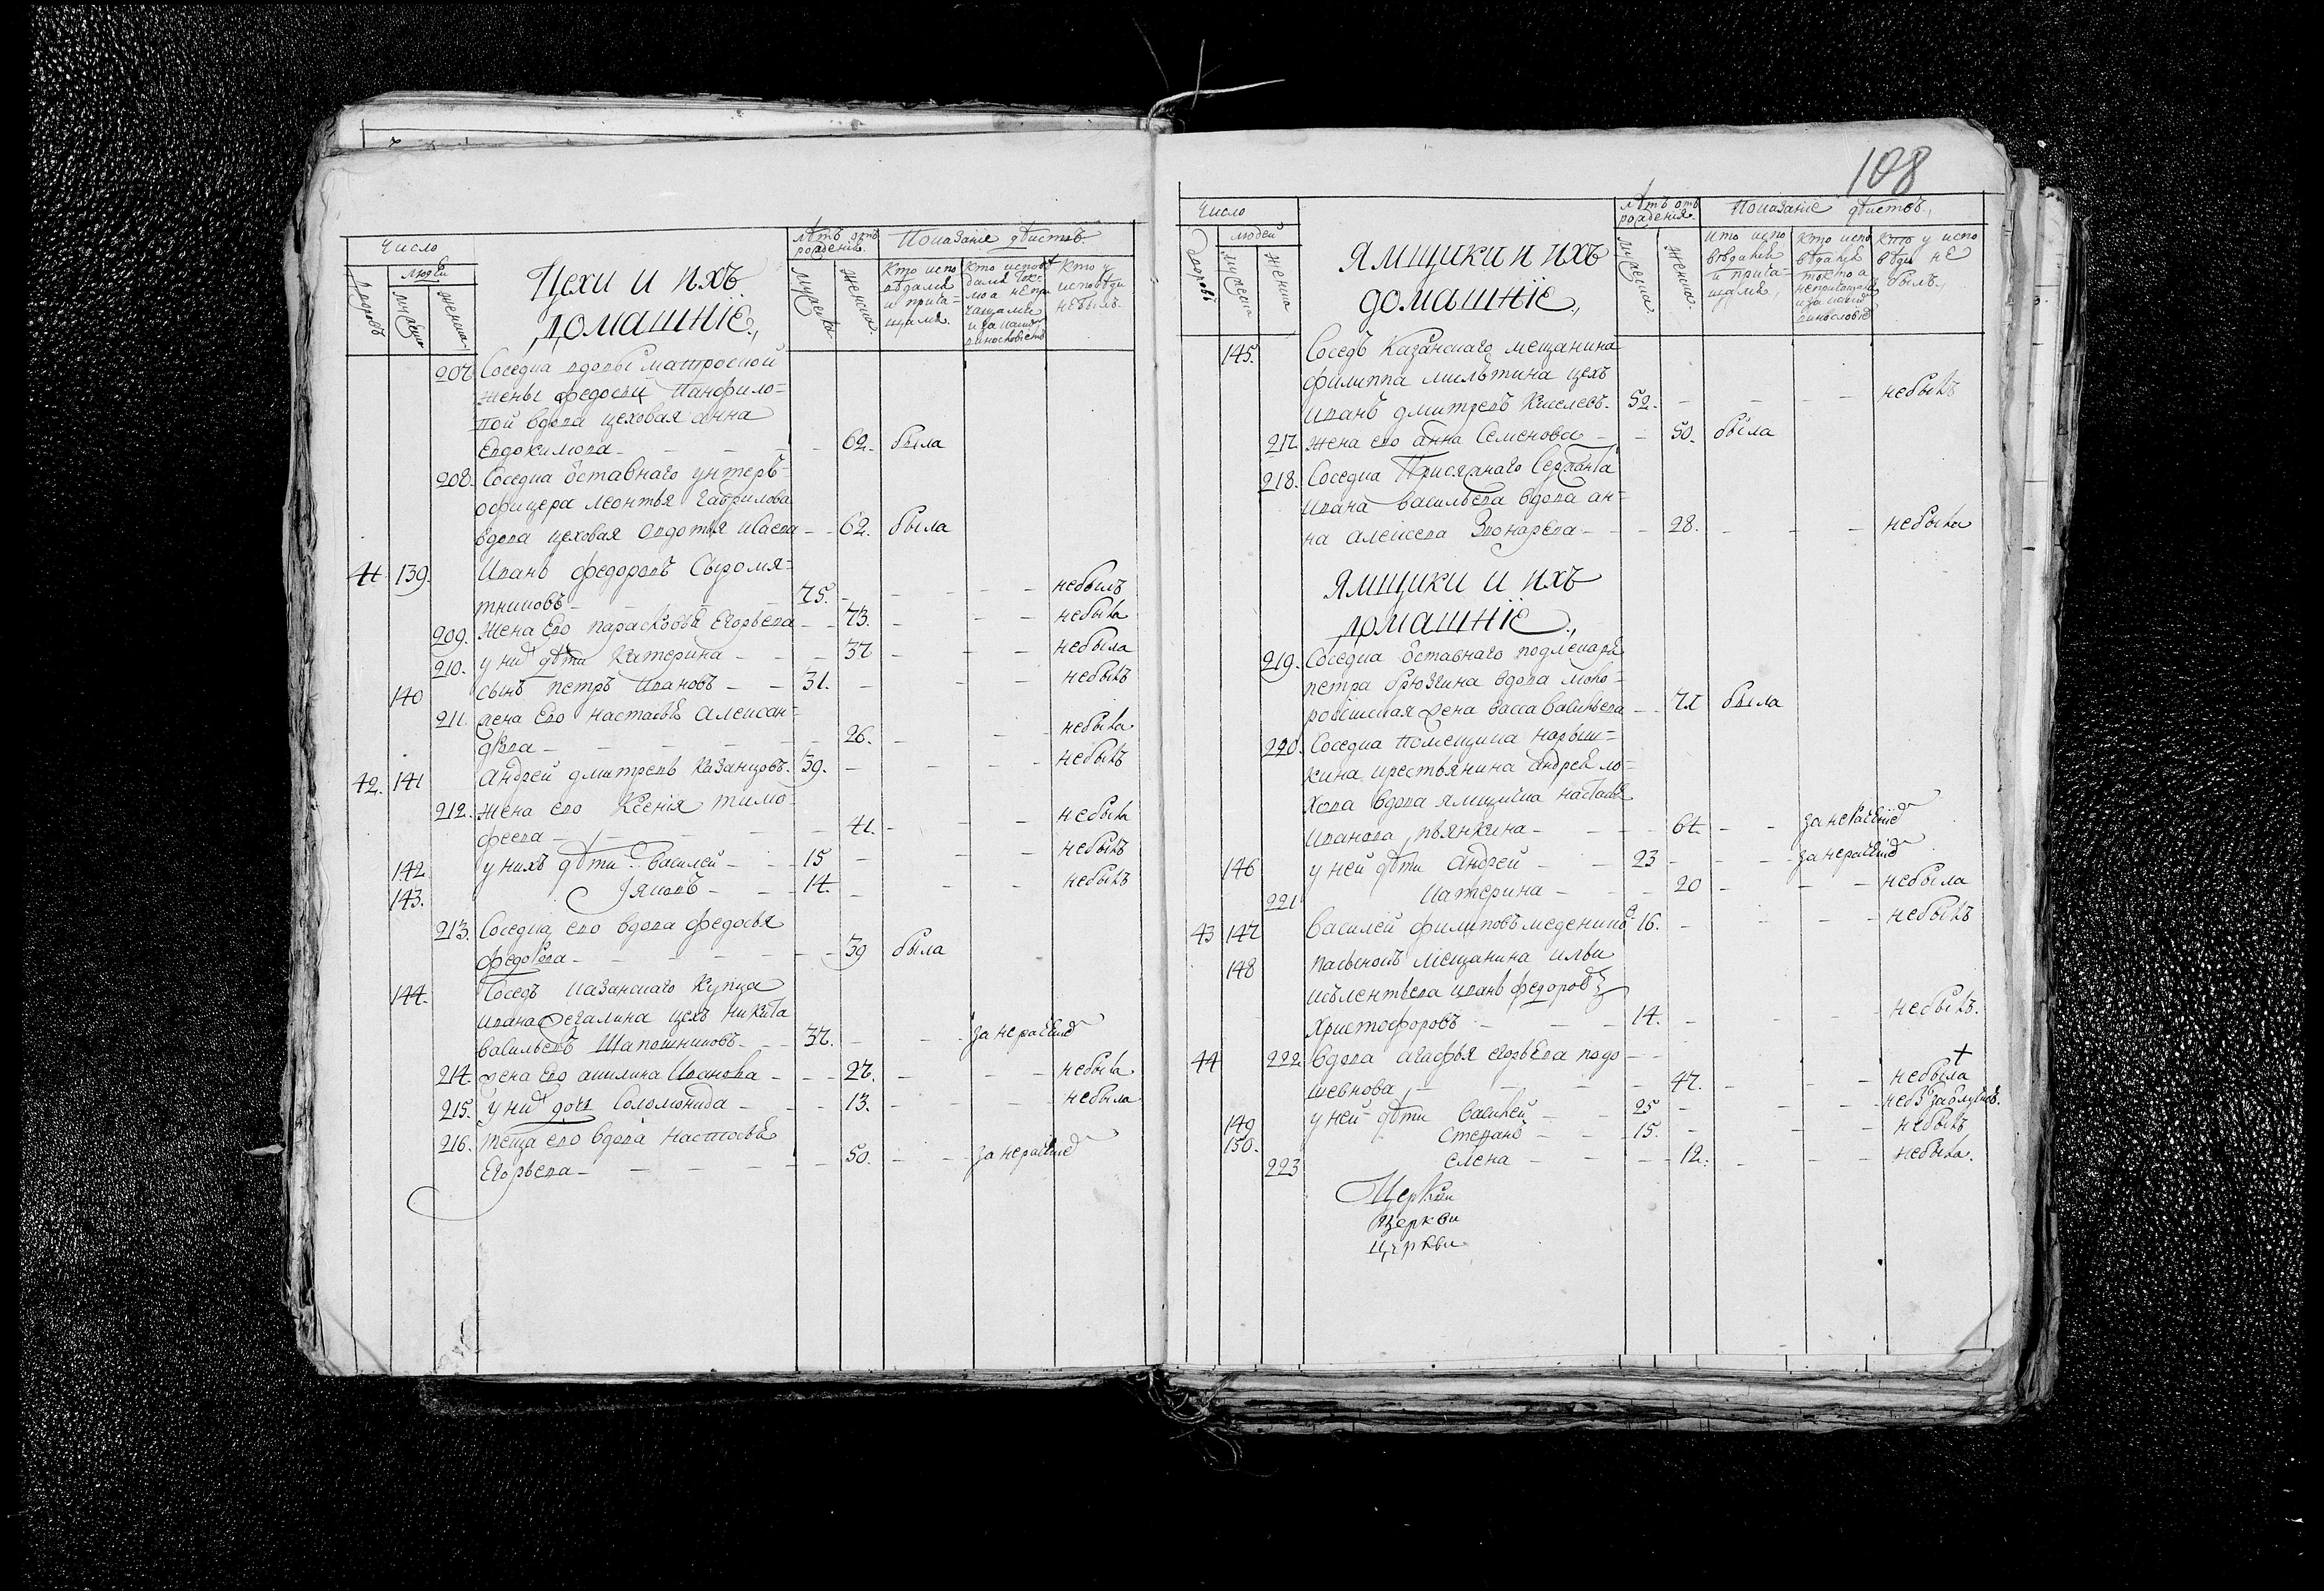 Число
людей
дворовъ
мужеска
женска
Цехи и ихъ
домашнїе.,
лѣтъ отъ
рожденїя.
мужеска
женска.
Показанїе дѣйствъ.
Кто испо
вѣдался
и прича=
щался.
Кто исповѣ
дался токъ
мо а не при
чащался
и за какимъ
винословїемъ
Кто у
исповѣди
небылъ.
207. Соседка вдовы матроской
жены федосьи Панфило=
вой вдова цеховая анна
Евдокимова – – – – 62. была
208. Соседка ѿставнаго унтеръ=
офицера леонтья гаврилова
вдова цеховая овдотья исаева – – 62. была
41 139. Иванъ федоровъ Сыромя=
тниковъ – – – 75. – – – небылъ
209. Жена Ево парасковья Егорьева – – 73. – – – небыла
210. у них дѣти Катерина – – – 37 – – – небыла
140 сынъ петръ Ивановъ – – 31. – – – небылъ
211. жена Ево настасья алексан=
дрова – – – – – 26. – – – небыла
42. 141 андрей дмитревъ казанцовъ. 39. – – – небылъ
212. жена ево Ксенїя тимо=
феева – – – – – 41. – – – небыла
142 у нихъ дѣти: василей – – 15 – – – небылъ
143. яковъ – – 14. – – – небылъ
213. Соседка ево вдова федосья
федорова – – – – – 39 была
144. Соседъ казанскаго купца
ивана жегалина цехъ никита
васильевъ Шапошниковъ – – 37. – – за нерачение
214. жена ево акилина Иванова – – – 27. – – – небыла
215. у них дочь Соломонида – – – 13. – – – небыла
216. теща ево вдова настасья
Егорьева – – – – – 50. – – за нерачение
108
Число
людей
дворовъ
мужеска
женска
ямщики и ихъ
домашнїе.,
лѣтъ отъ
рожденїя.
мужеска
женска.
Показанїе дѣйствъ.,
кто испо
вѣдался
и прича=
щался.,
Кто испо
вѣдался
токмо а
непричащался
и за какимъ
винословїемъ
Кто у испо
вѣди не
былъ.,
145. Соседъ Казанскаго мещанина
филиппа мильтина цехъ
иванъ дмитревъ Киселевъ. 52. – – – небылъ
217. жена ево анна Семенова – – 50. была
218. Соседка Присяжнаго Сержанта
ивана васильева вдова ан=
на алексева Звонарева – – 28. – – – небыла
ямщики и ихъ
домашнїе.,
219. Соседка ѿставнаго подлекаря
петра брюзгина вдова
жена васса васильева – – 71 была
220. Соседка помещика нарыш=
кина крестьянина андрея ло=
хова вдова ямщичка настасья
иванова пьянкина – – – 64. – – за нерачение
146 у ней дѣти андрей – – 23 – – за нерачение
221 катерина – – – 20 – – – небыла
43 147 василей филиповъ меденинъ 16. – – – небылъ
148 пасынокъ мещанина ильи
иванъ федоровъ
христофоровъ – – – 14. – – – небылъ.
44 222 вдова агафья егорьева подо
шевнова – – – – 47. – – небыла
149 у ней дѣти василей – – 25 – – –
150. степанъ – – 15. – – – небылъ
223 елена – – – 12. – – – небыла.
Церкви
Церкви
церкви